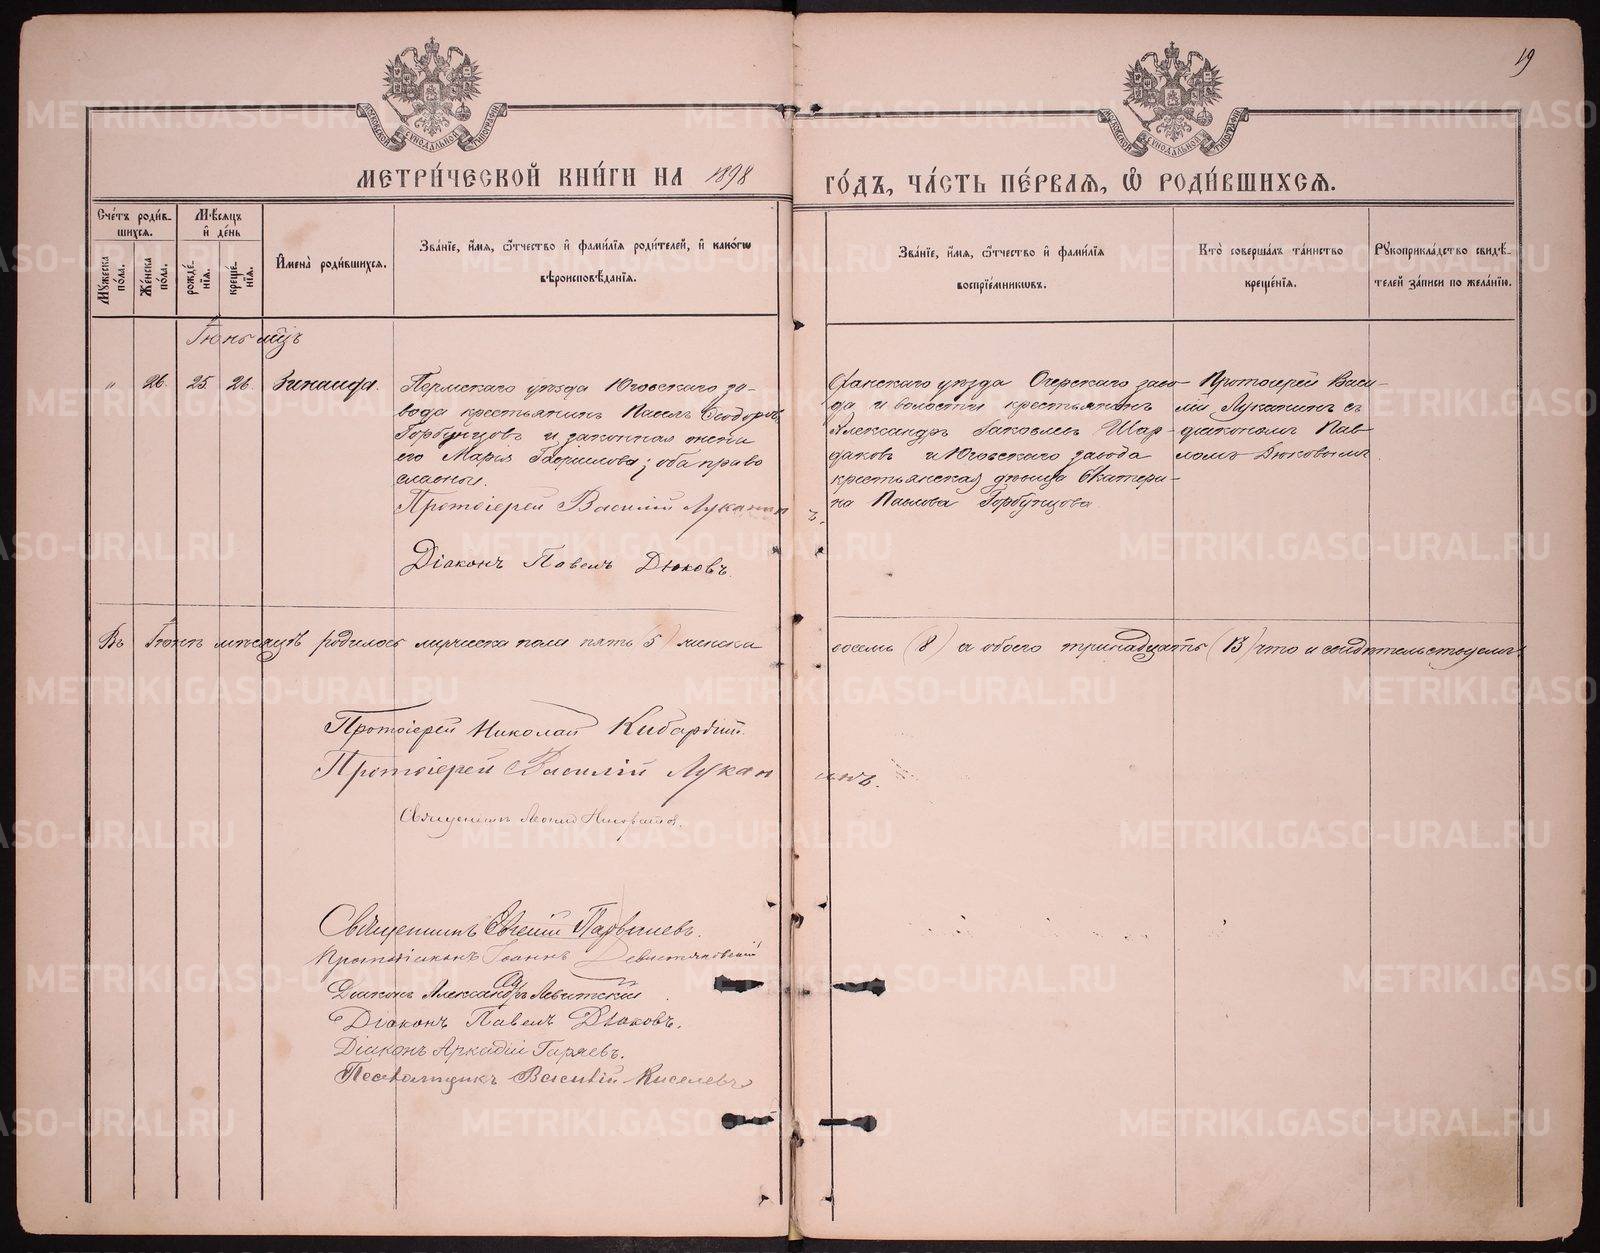 19
МОСКОВСКОЙ СѴНОДАЛЬНОЙ ТИПОГРАФІИ
МОСКОВСКОЙ СѴНОДАЛЬНОЙ ТИПОГРАФІИ
МЕТРИ́ЧЕСКОЙ КНИ́ГИ НА 1898 ГО́ДЪ, ЧА́СТЬ ПЕ́РВАЯ, Ѡ҆ РОДИ́ВШИХСЯ.
Счетъ роди́вшихся.
Мужеска по́ла.
Же́нска по́ла.
Мѣ́сяцъ и҆ де́нь
рожде́нїя.
креще́нїя.
И҆мена̀ роди́вшихся.
Зва́нїе, и҆́мя, ѻ҆́тчество и҆ фами́лїя роди́телей, и҆ како́гѡ вѣроисповѣ́данїя.
Зва́нїе, и҆́мя, ѻ҆́тчество и҆ фами́лїя воспрїе́мникѡвъ.
Кто̀ соверша́лъ та́инство креще́нїя.
Рꙋкоприкла́дство свидѣ́телей за́писи по жела́нїю.
Іюнь мцъ
" 26. 25. 26. Зинаида.
Пермскаго уѣзда Юговскаго за-
вода крестьянинъ Павелъ Ѳеодоровъ
Горбунцовъ и законная жена
его Марія Гавриилова; оба право
славные.
Протоіерей Василій Луканинъ.
Діаконъ Павелъ Дюковъ.
Оханскаго уѣзда Очерскаго заво-
да и волости крестьянинъ
Александръ Іаковлевъ Шар-
даковъ и Юговскаго завода
крестьянская дѣвица Екатери-
на Павлова Горбунцова
Протоіерей Васи-
лій Луканинъ съ
діакономъ Пав-
ломъ Дюковымъ.
Въ Іюнѣ мѣсяцѣ родилось мужеска пола пять (5) женска восемь (8) а обоего тринадцать (13) что и свидѣтельствуемъ:
Протоіерей Николай Кибардинъ.
Протоіерей Василій Луканинъ.
Священникъ Леонидъ
Священникъ Евгеній
Протодіаконъ Іоаннъ
Діаконъ Александръ Левитскій
Діаконъ Павелъ Дюковъ.
Діаконъ Аркадій Гаряевъ.
Псаломщикъ Василій Киселевъ
METRIKI.GASO-URAL.RU